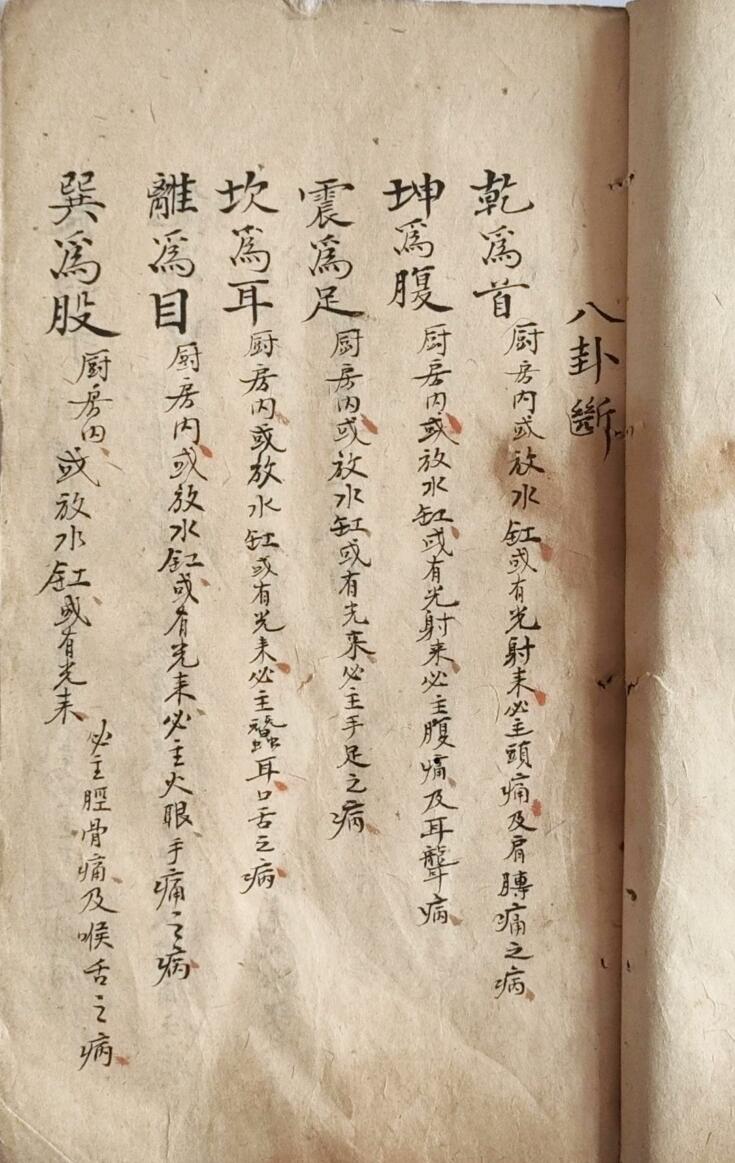 八卦斷
乾為首 厨房内或放水缸或有光射来必主頭痛及肩膊痛之病
坤為腹 厨房内或放水缸或有光射来必主腹痛及耳聾病
震為足 厨房内或放水缸或有光来必主手足之病
坎為耳 厨房内或放水缸或有光来必主耳口舌之病
離為目 厨房内或放水缸或有光来必主火眼手痛之病
巽為股 厨房内或放水缸或有光来必主脛骨痛及喉舌之病